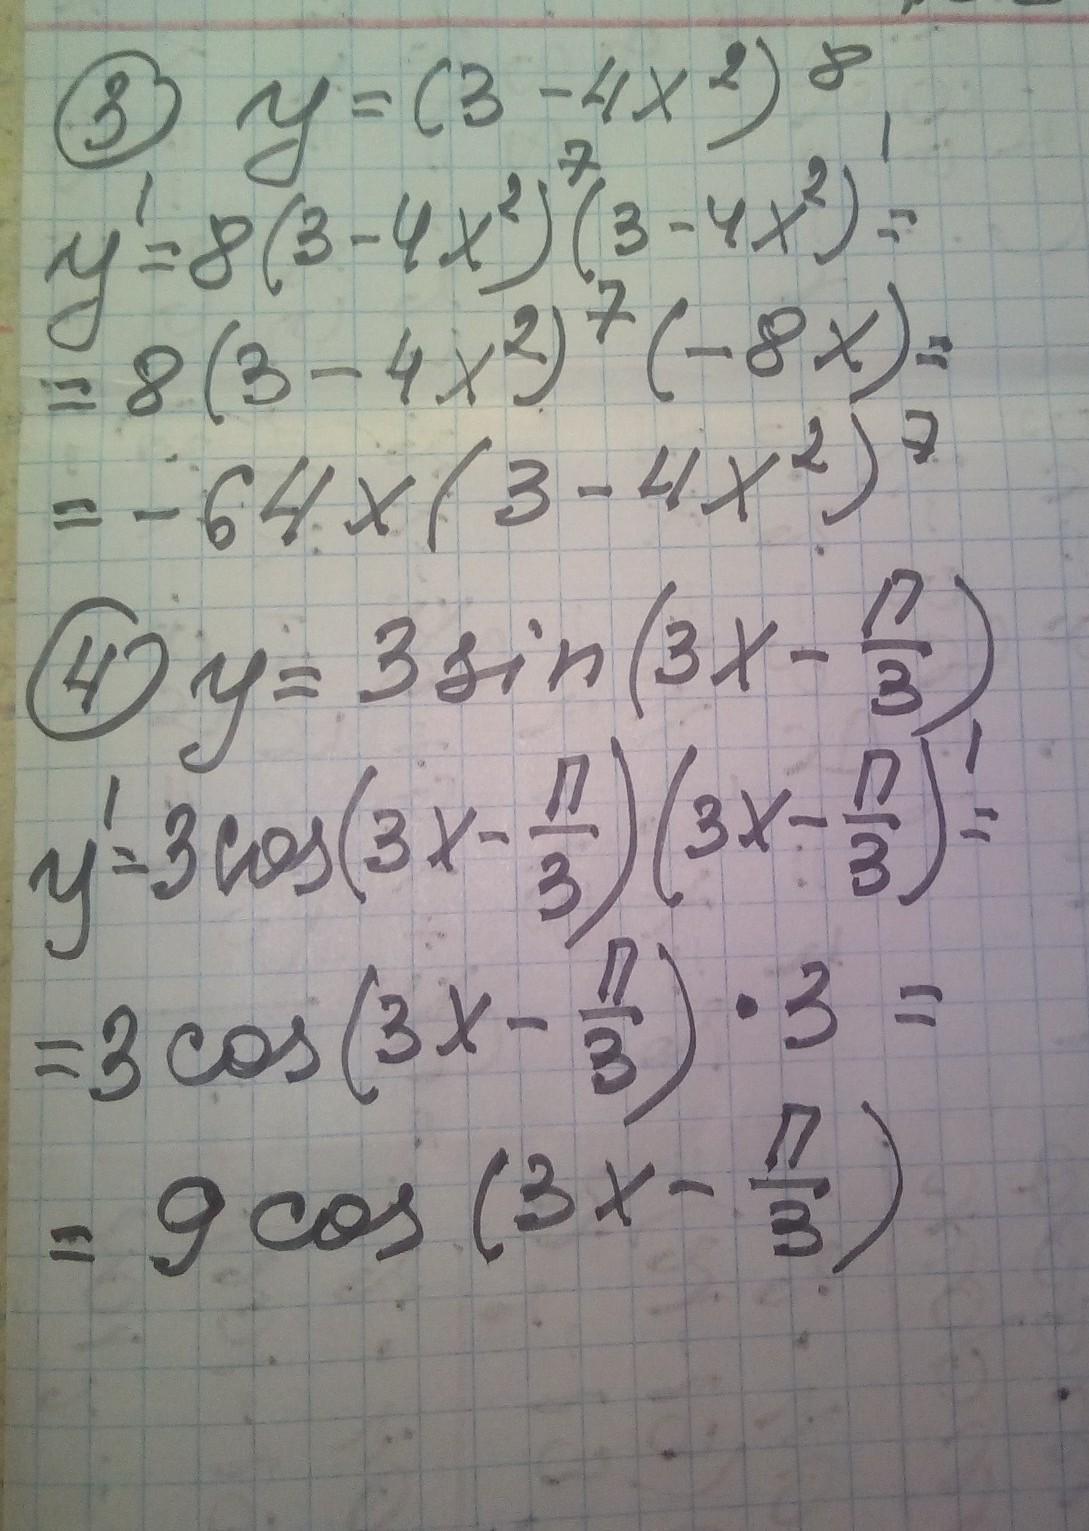 ③ y = (3 - 4x²)⁸
y' = 8(3 - 4x²)⁷(3 - 4x²)' =
= 8(3 - 4x²)⁷(-8x) =
= -64x(3 - 4x²)⁷
④ y = 3 sin(3x - π/3)
y' = 3cos(3x - π/3)(3x - π/3)' =
= 3 cos(3x - π/3) · 3 =
= 9 cos(3x - π/3)